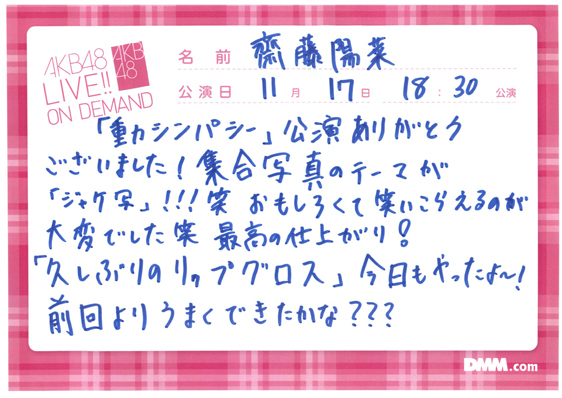 AKB48
LIVE!!
ON DEMAND
AKB
48
名前 齋藤陽菜
公演日 11月 17日 18:30 公演
「重力シンパシー」公演ありがとう
ございました！集合写真のテーマが
「ジャケ写」!!!笑 おもしろくて笑いこらえるのが
大変でした笑 最高の仕上がり！
「久しぶりのリップグロス」今日もやったよ〜！
前回よりうまくできたかな???
DMM.com